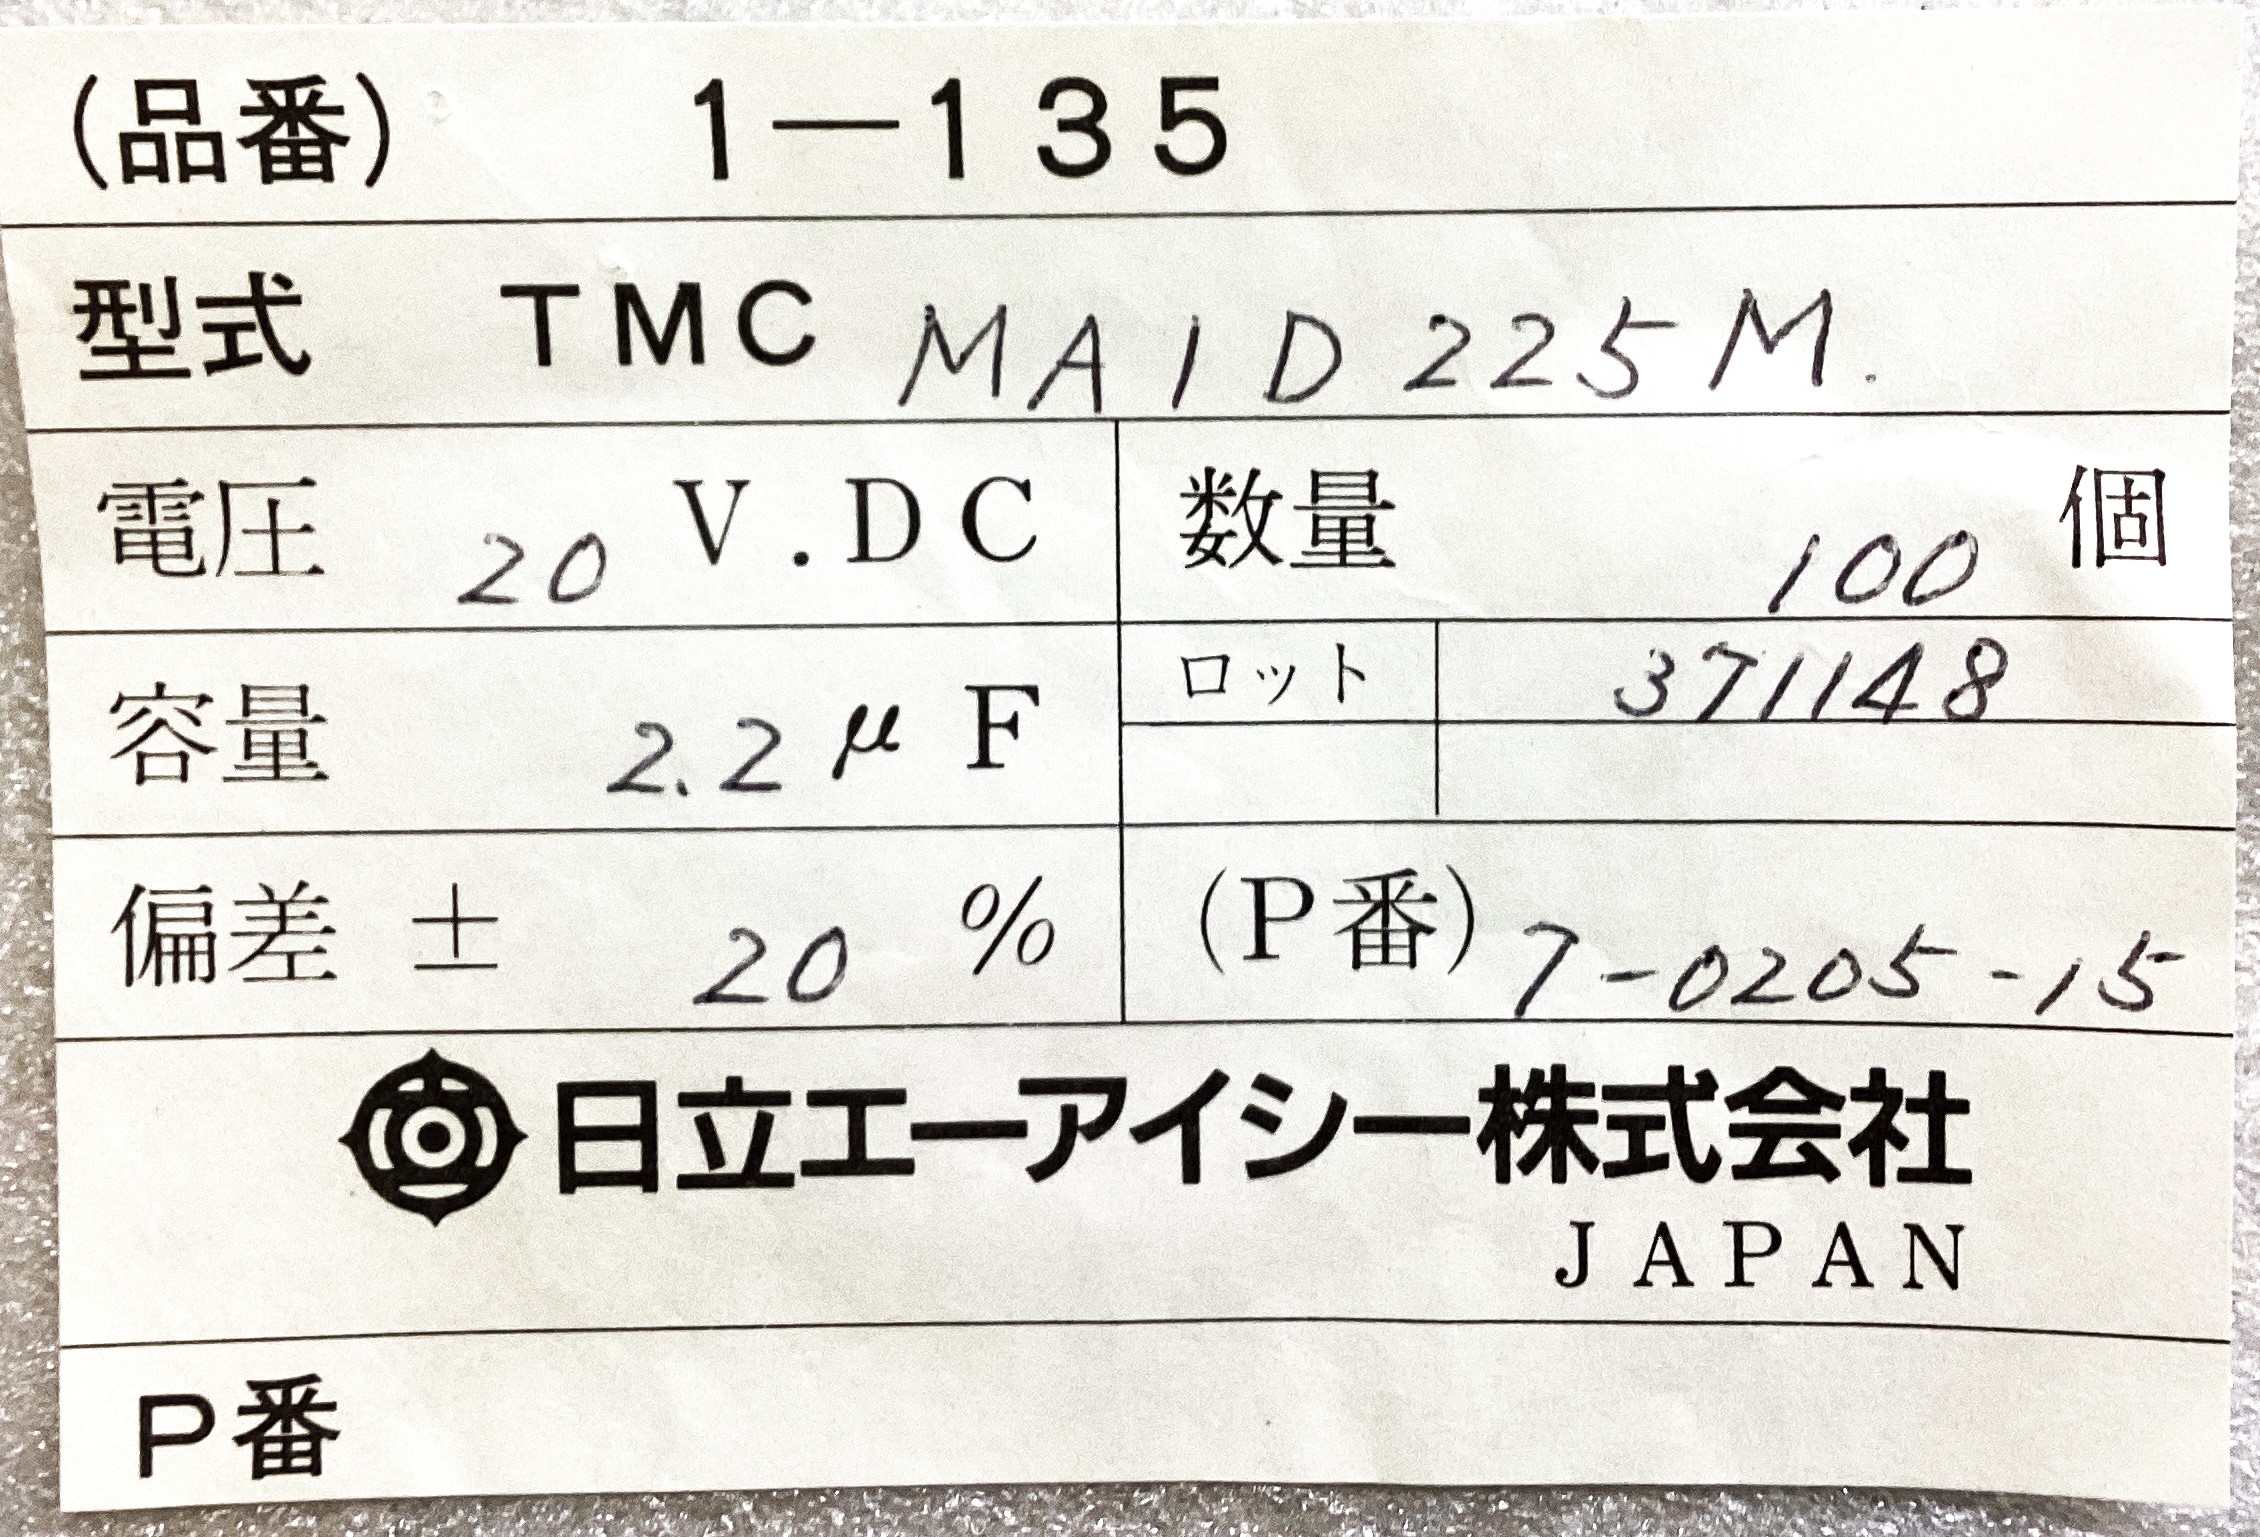 (品番) 1―135
型式 TMC MA1D225M.
電圧 20 V.DC 数量 100 個
容量 2.2 μF ロット 371148
偏差 ± 20 % (P番) 7-0205-15
日立エーアイシー株式会社
JAPAN
P番